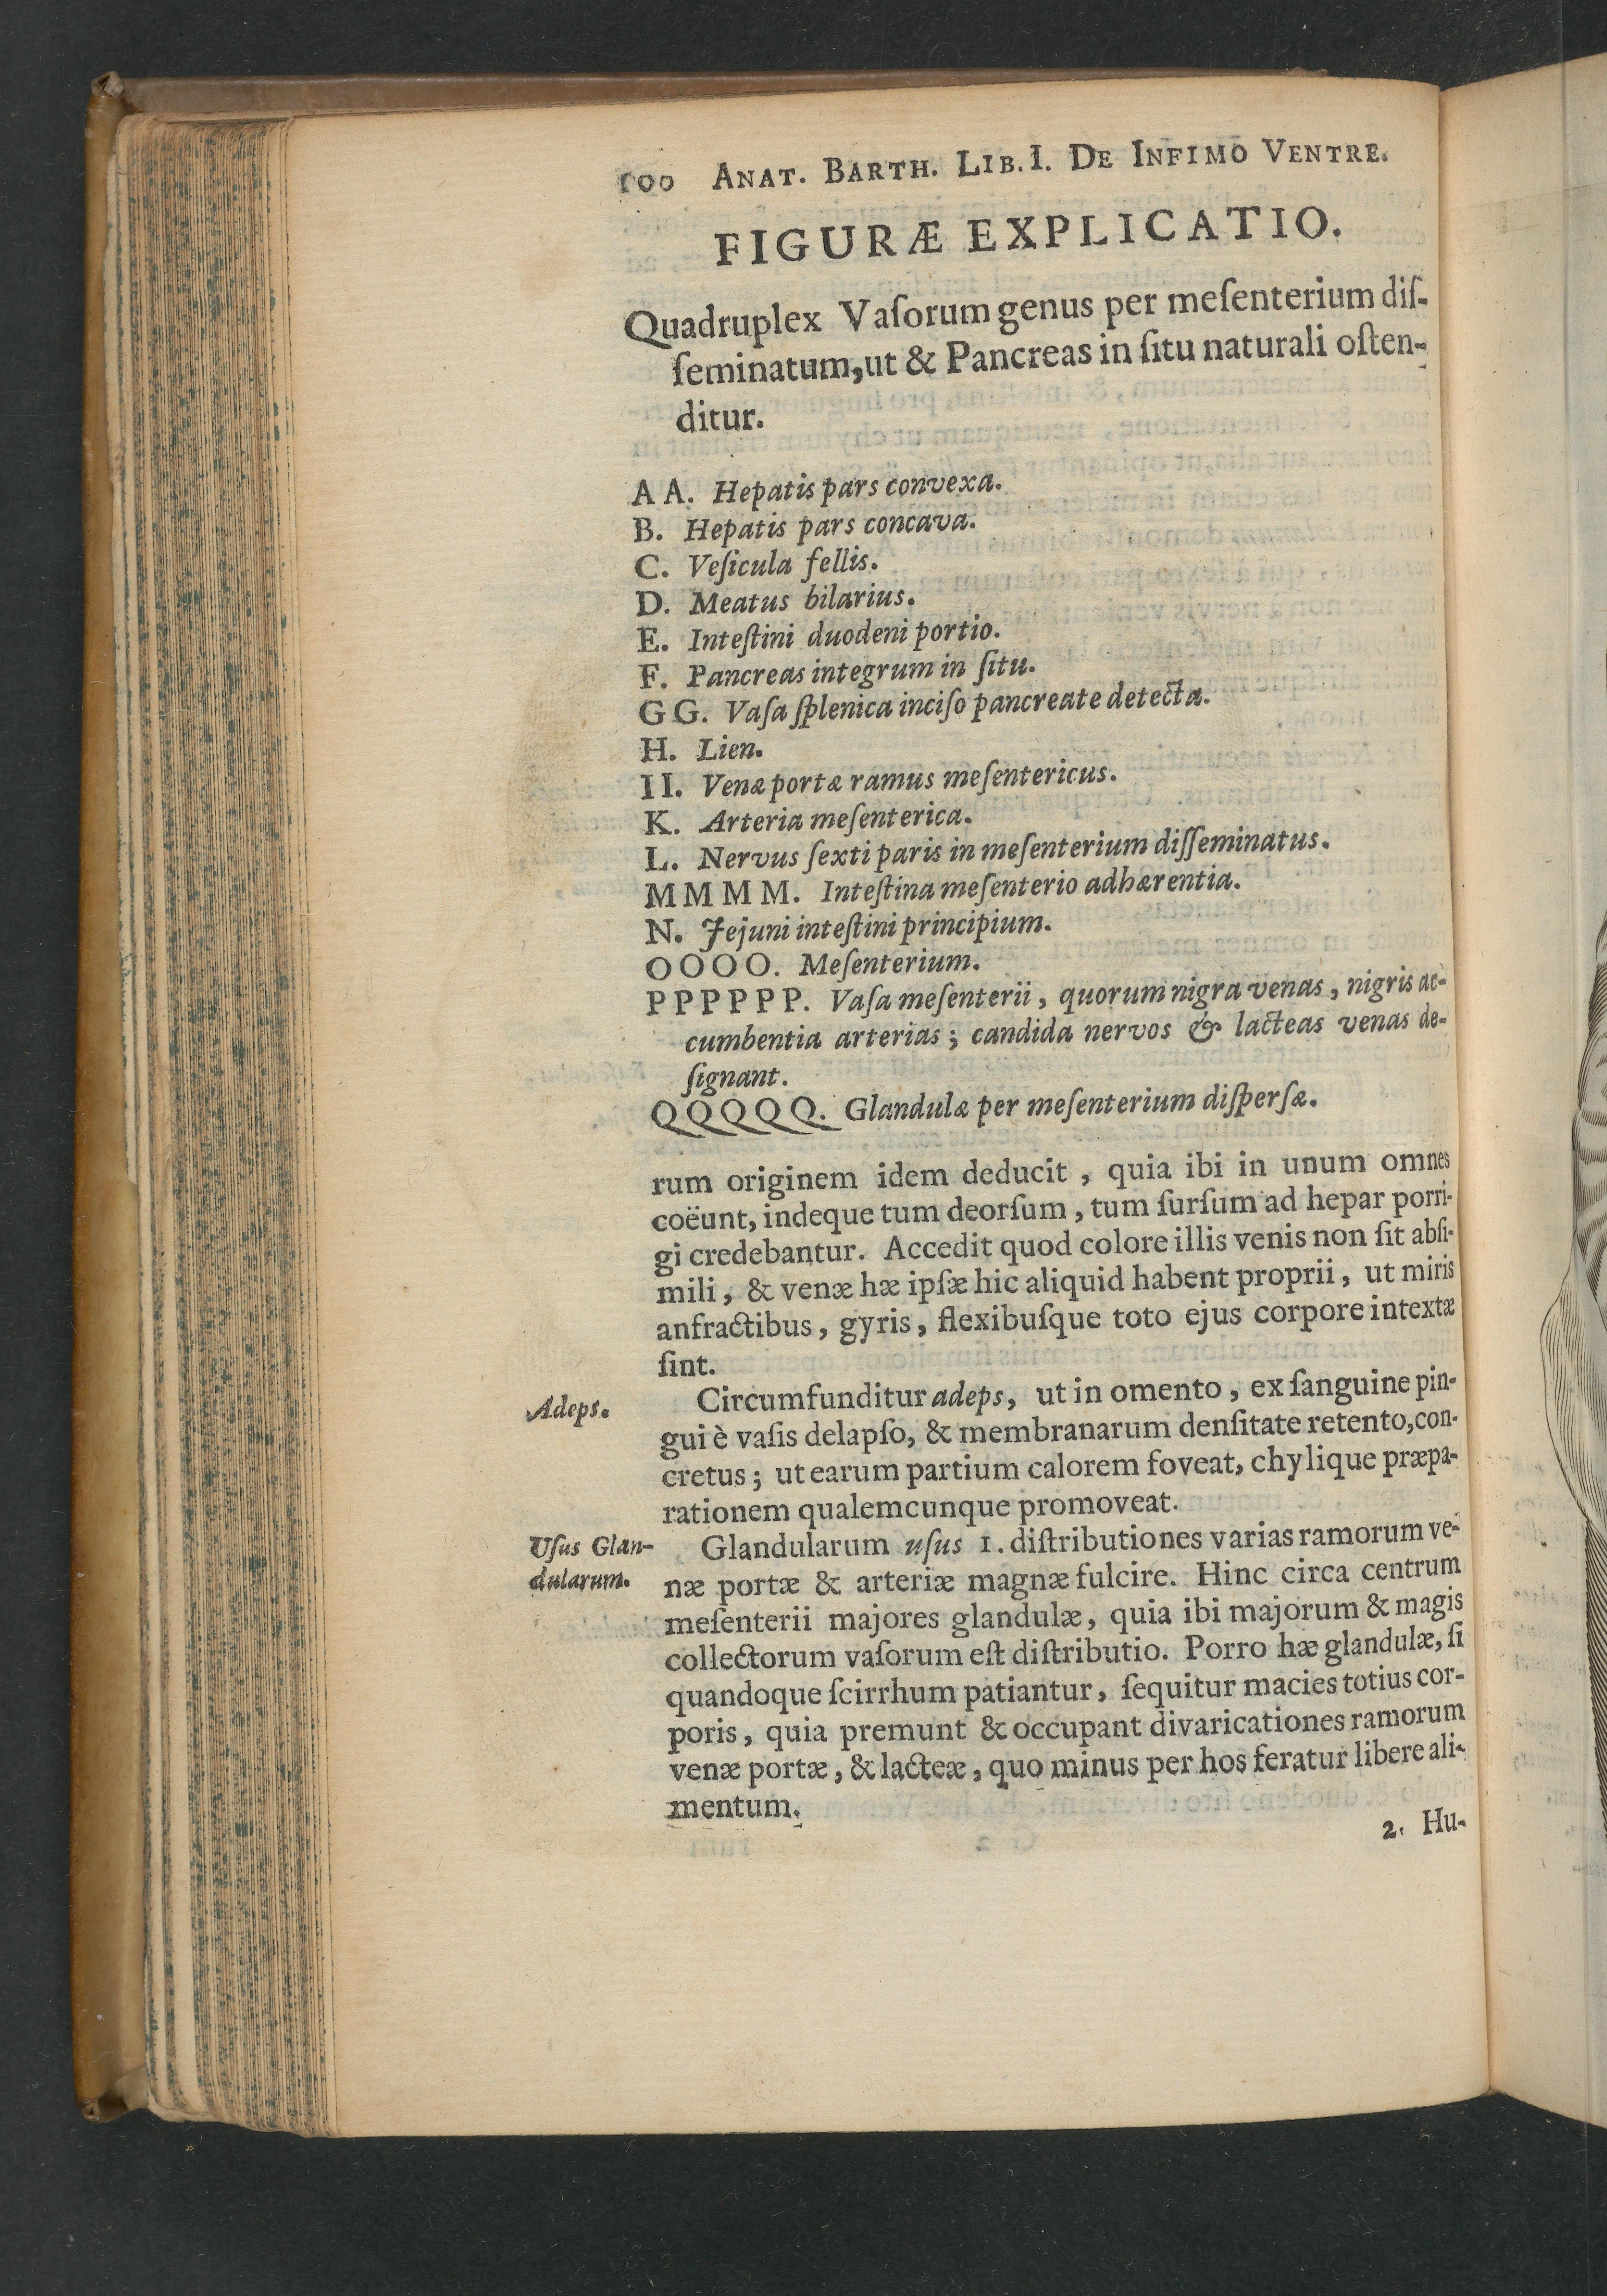 100 ANAT. BARTH. LIB. I. DE INFIMO VENTRE.
FIGURÆ EXPLICATIO.
Quadruplex Vaſorum genus per meſenterium diſ-
ſeminatum, ut & Pancreas in ſitu naturali oſten-
ditur.
A A. Hepatis pars convexa.
B. Hepatis pars concava.
C. Veſicula fellis.
D. Meatus bilarius.
E. Inteſtini duodeni portio.
F. Pancreas integrum in ſitu.
G G. Vaſa ſplenica inciſo pancreate detecta.
H. Lien.
I I. Venæ portæ ramus meſentericus.
K. Arteria meſenterica.
L. Nervus ſexti paris in meſenterium diſſeminatus.
M M M M. Inteſtina meſenterio adhærentia.
N. Jejuni inteſtini principium.
O O O O. Meſenterium.
P P P P P P. Vaſa meſenterii, quorum nigra venas, nigris ac-
cumbentia arterias; candida nervos & lacteas venas de-
ſignant.
Q Q Q Q Q. Glandulæ per meſenterium diſperſæ.
rum originem idem deducit, quia ibi in unum omnes
coëunt, indeque tum deorſum, tum ſurſum ad hepar porri-
gi credebantur. Accedit quod colore illis venis non ſit abſi-
mili, & venæ hæ ipſæ hic aliquid habent proprii, ut miris
anfractibus, gyris, flexibuſque toto ejus corpore intextæ
ſint.
Adeps. Circumfunditur adeps, ut in omento, ex ſanguine pin-
gui è vaſis delapſo, & membranarum denſitate retento, con-
cretus; ut earum partium calorem foveat, chylique præpa-
rationem qualemcunque promoveat.
Uſus Glan- Glandularum uſus 1. diſtributiones varias ramorum ve-
dularum. næ portæ & arteriæ magnæ fulcire. Hinc circa centrum
meſenterii majores glandulæ, quia ibi majorum & magis
collectorum vaſorum eſt diſtributio. Porro hæ glandulæ, ſi
quandoque ſcirrhum patiantur, ſequitur macies totius cor-
poris, quia premunt & occupant divaricationes ramorum
venæ portæ, & lacteæ, quo minus per hos feratur libere ali-
mentum.
2. Hu-